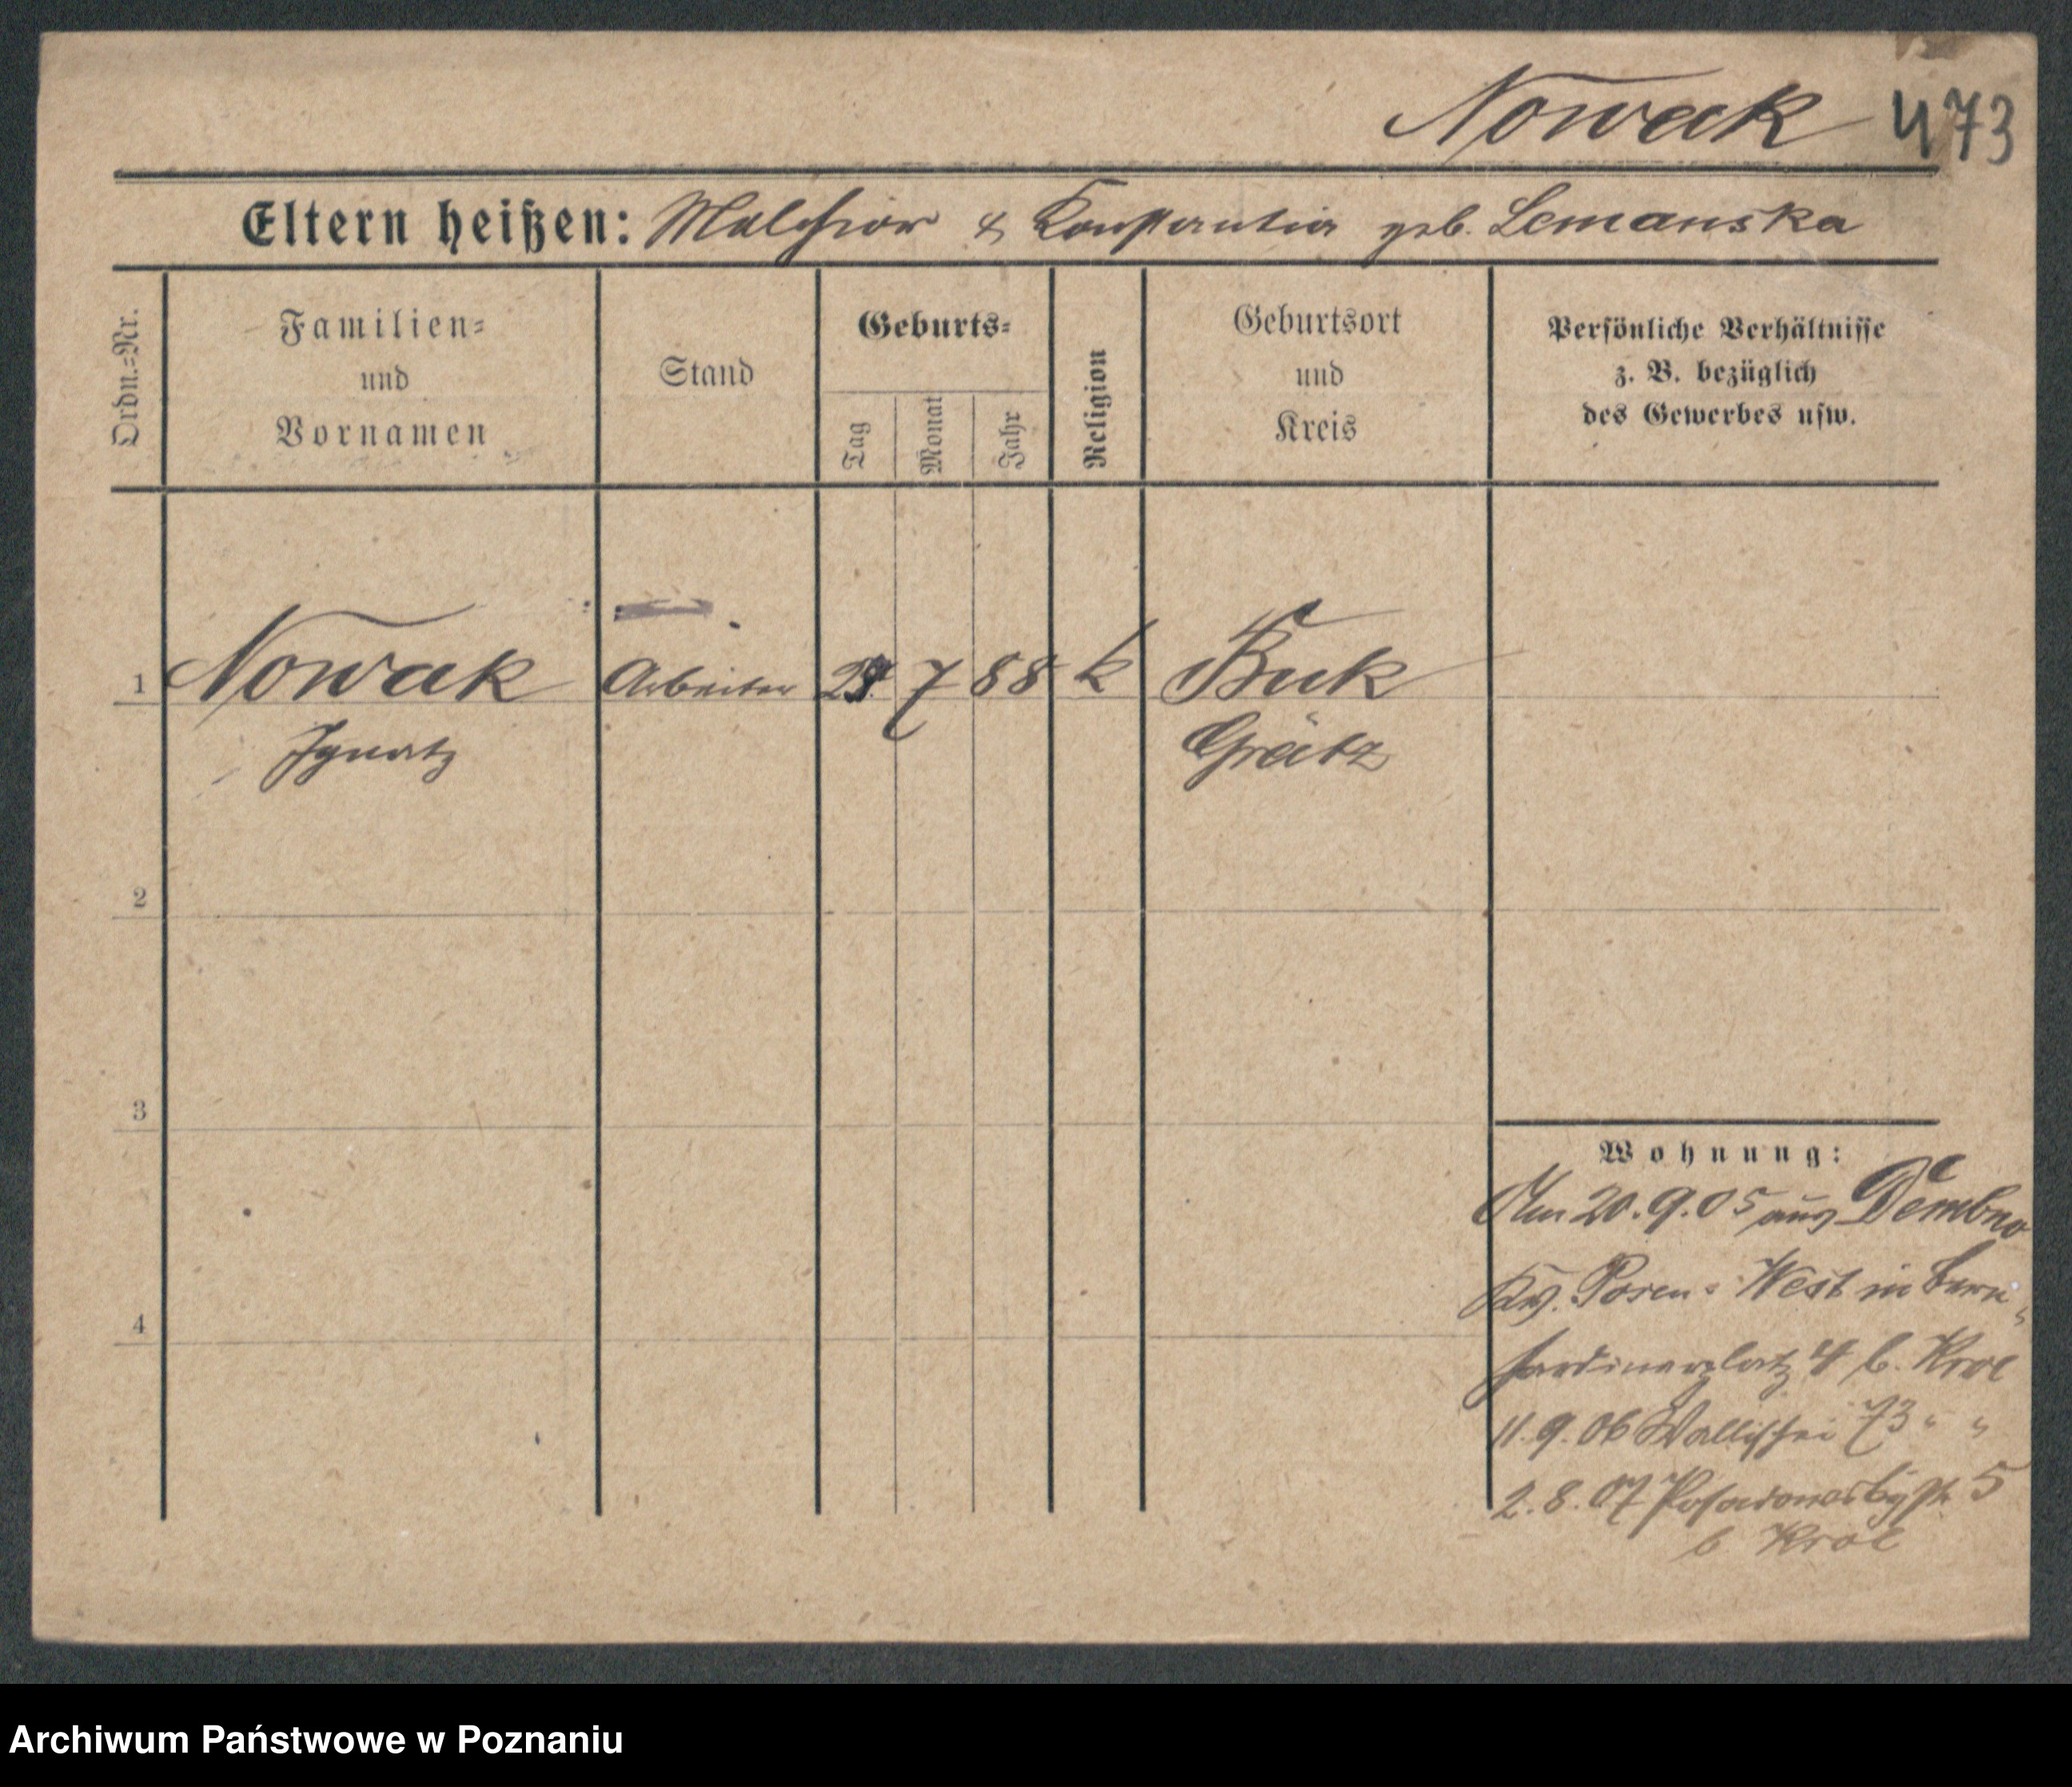 Nowak 473
Eltern heißen: Melchior & Konstantia geb. Lemanska
Ordn.=Nr.
Familien=
und
Vornamen
Stand
Geburts=
Tag
Monat
Jahr
Religion
Geburtsort
und
Kreis
Persönliche Verhältnisse
z. B. bezüglich
des Gewerbes usw.
1 Nowak Arbeiter 7 88 k Buk
Ignatz Grätz
2
3
4
Wohnung:
Am 20.9.05 aus Dembno
Krs. Posen=West in Bern=
hardinerplatz 4 b. Krol
11.9.06 Wallischei 73 " "
2.8.07 5
b Krol
Archiwum Państwowe w Poznaniu